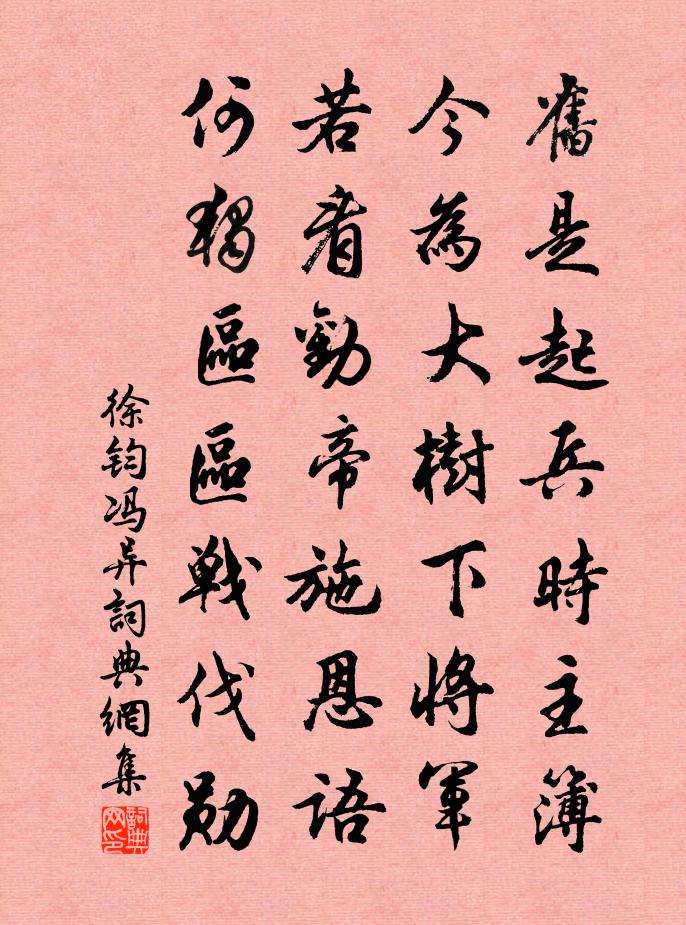 舊是起兵時主簿
今為大樹下將軍
若看勸帝施恩語
何獨區區戰伐勋
徐钧冯异詞典網集
詞典网印